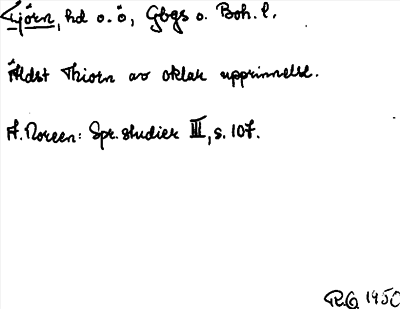 Tjörn, hd o. ö, Gbgs o. Boh. l.
Äldst Thiorn av oklar upprinnelse.
A. Noreen: Spr. studier III, s. 107.
R.O. 1950